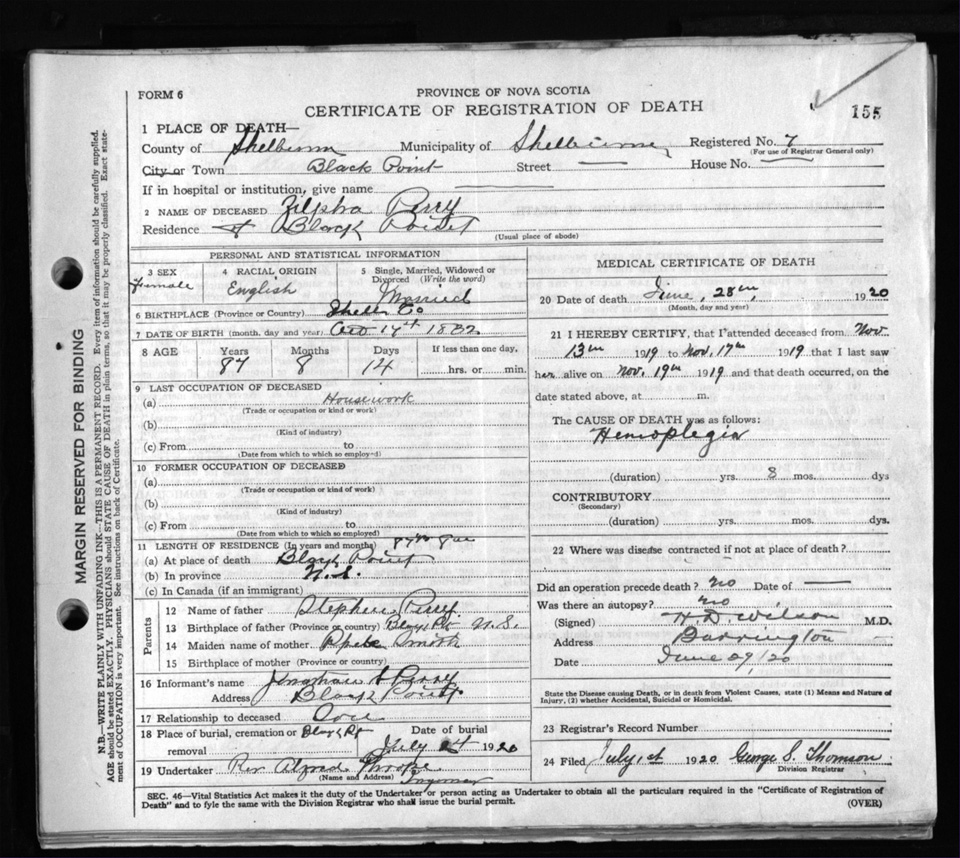 FORM 6
PROVINCE OF NOVA SCOTIA
CERTIFICATE OF REGISTRATION OF DEATH
155
1 PLACE OF DEATH—
County of Shelburne Municipality of Shelburne Registered No. 7
(For use of Registrar General only)
City or Town Black Point Street — House No. —
If in hospital or institution, give name
2 NAME OF DECEASED Zilpha Perry
Residence Black Point
(Usual place of abode)
PERSONAL AND STATISTICAL INFORMATION
3 SEX Female
4 RACIAL ORIGIN English
5 Single, Married, Widowed or Divorced (Write the word) Married
6 BIRTHPLACE (Province or Country) Shelb Co
7 DATE OF BIRTH (month, day and year) Oct 14th 1832
8 AGE Years 87 Months 8 Days 14 If less than one day, hrs. or min.
9 LAST OCCUPATION OF DECEASED
(a) Housework
(Trade or occupation or kind or work)
(b)
(Kind of industry)
(c) From to
(Date from which to which so employed)
10 FORMER OCCUPATION OF DECEASED
(a)
(Trade or occupation or kind of work)
(b)
(Kind of industry)
(c) From to
(Date from which to which so employed)
11 LENGTH OF RESIDENCE (In years and months)
(a) At place of death Black Point
(b) In province N.S.
(c) In Canada (if an immigrant)
Parents
12 Name of father Stephen Perry
13 Birthplace of father (Province or country) Black Pt N.S.
14 Maiden name of mother Smith
15 Birthplace of mother (Province or country)
16 Informant's name Jonathan Perry
Address Black Point
17 Relationship to deceased
18 Place of burial, cremation or removal Black Pt Date of burial July 1920
19 Undertaker Rev Alfred Thorpe
(Name and Address)
MEDICAL CERTIFICATE OF DEATH
20 Date of death June, 28th, 1920
(Month, day and year)
21 I HEREBY CERTIFY, that I attended deceased from Nov.
13th 1919 to Nov. 17th 1919 that I last saw
her alive on Nov. 19th 1919 and that death occurred, on the
date stated above, at m.
The CAUSE OF DEATH was as follows:
Hemoplegia
(duration) yrs. 8 mos. dys
CONTRIBUTORY
(Secondary)
(duration) yrs. mos. dys.
22 Where was disease contracted if not at place of death?
Did an operation precede death? no Date of —
Was there an autopsy? no
(Signed) H. D. Wilson M.D.
Address Barrington
Date June 29/20
State the Disease causing Death, or in death from Violent Causes, state (1) Means and Nature of
Injury, (2) whether Accidental, Suicidal or Homicidal.
23 Registrar's Record Number
24 Filed July 1st 1920 George S. Thomson
Division Registrar
SEC. 46—Vital Statistics Act makes it the duty of the Undertaker or person acting as Undertaker to obtain all the particulars required in the "Certificate of Registration of
Death" and to fyle the same with the Division Registrar who shall issue the burial permit.
(OVER)
MARGIN RESERVED FOR BINDING
N.B.—WRITE PLAINLY WITH UNFADING INK—THIS IS A PERMANENT RECORD. Every item of information should be carefully supplied.
AGE should be stated EXACTLY. PHYSICIANS should STATE CAUSE OF DEATH in plain terms, so that it may be properly classified. Exact statement of OCCUPATION is very important. See instructions on back of Certificate.